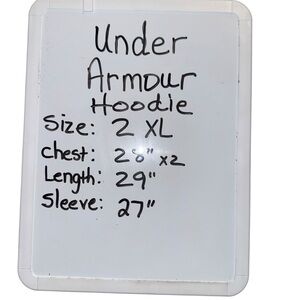 Under
Armour
Hoodie
Size: 2 XL
Chest: 28" x2
Length: 29"
Sleeve: 27"